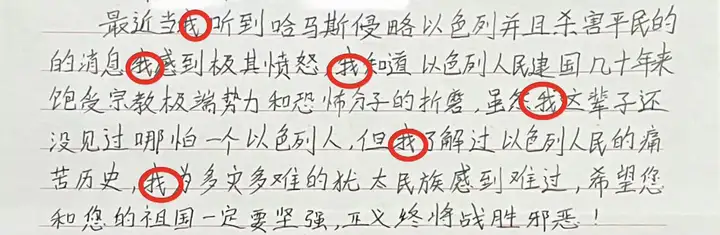 最近当我听到哈马斯侵略以色列并且杀害平民的
的消息我感到极其愤怒,我知道以色列人民建国几十年来
饱受宗教极端势力和恐怖分子的折磨,虽然我这辈子还
没见过哪怕一个以色列人,但我了解过以色列人民的痛
苦历史,我为多灾多难的犹太民族感到难过,希望您
和您的祖国一定要坚强,正义终将战胜邪恶!